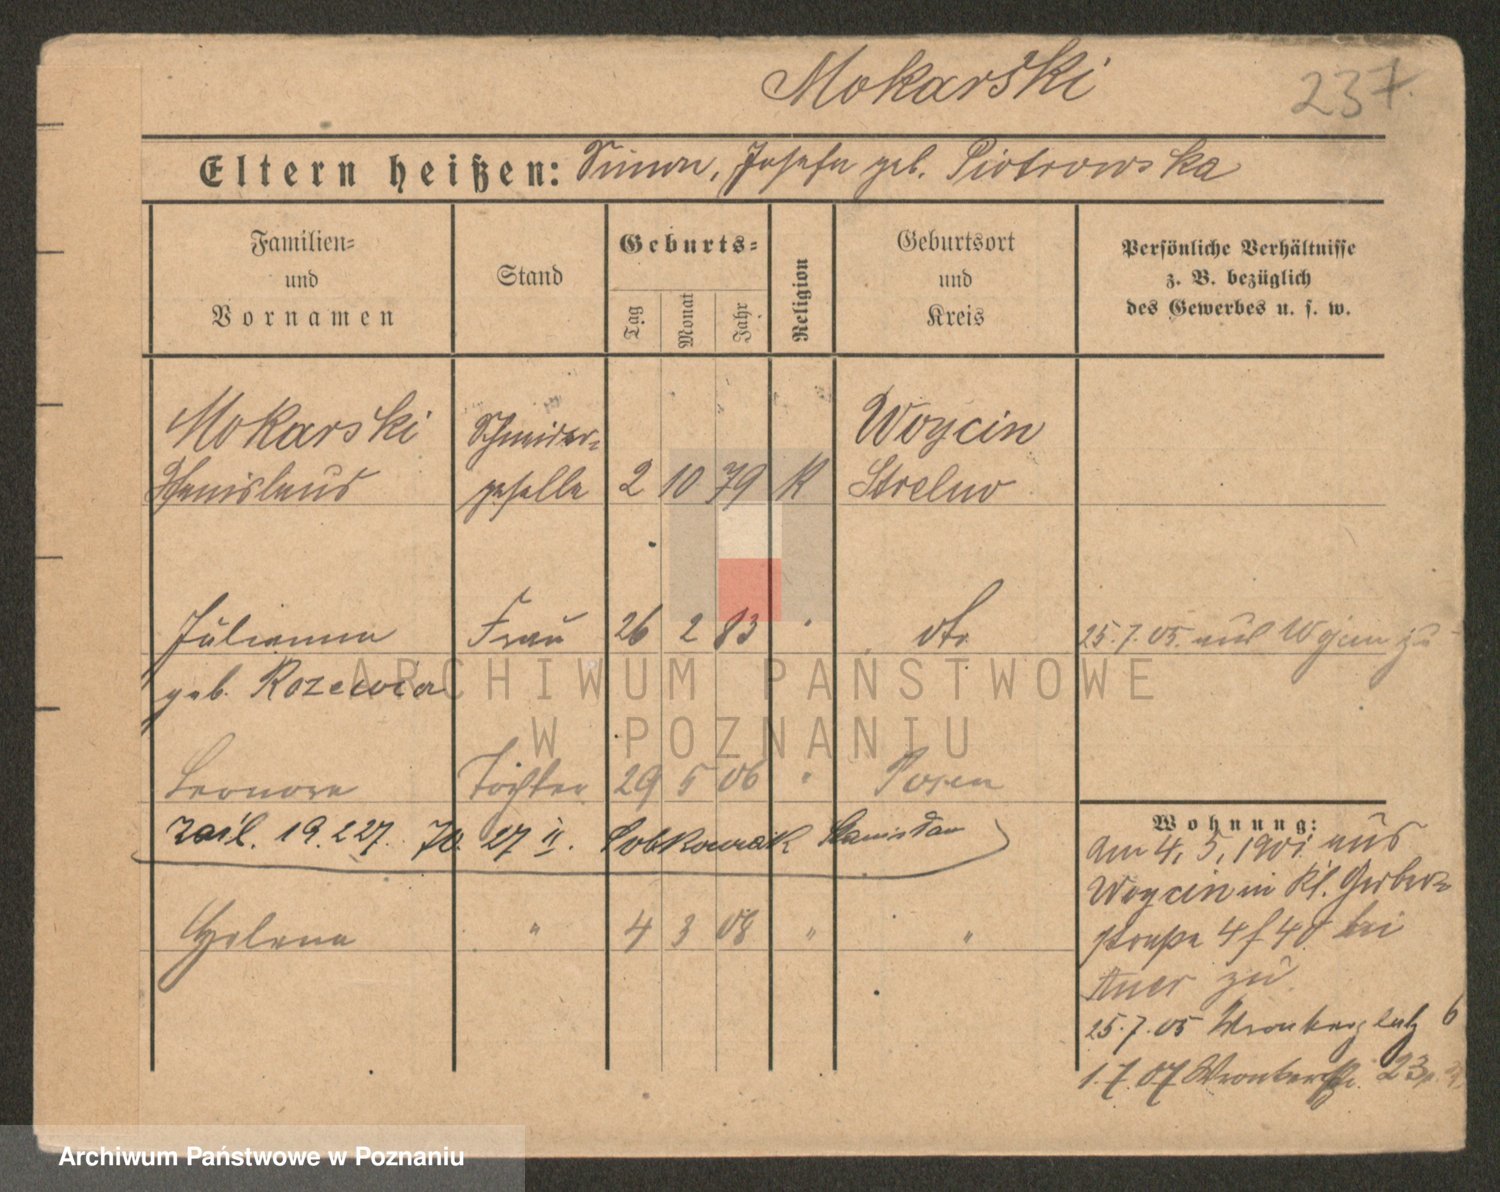 Mokarski
237.
Eltern heißen: Simon, Josefa geb. Piotrowska
Familien-
und
Vornamen
Stand
Geburts-
Tag
Monat
Jahr
Religion
Geburtsort
und
Kreis
Persönliche Verhältnisse
z. B. bezüglich
des Gewerbes u. s. w.
Mokarski Schneider- Woycin
Stanislaus geselle 2 10 79 K Strelno
Julianna Frau 26 2 83 " dto 25.7.05. aus Wojcin zu
geb.
ARCHIWUM PAŃSTWOWE
W POZNANIU
Leonora Tochter 29 5 06 " Posen
19.2.27. 27 II. Stanisław
Helena " 4 3 08 " "
Wohnung:
am 4. 5. 1901 aus
Woycin in Kl. Gerber-
straße 4 bei
zu
25.7.05 Wronkerplatz 6
1.7.07 Wronkerstr. 23
Archiwum Państwowe w Poznaniu